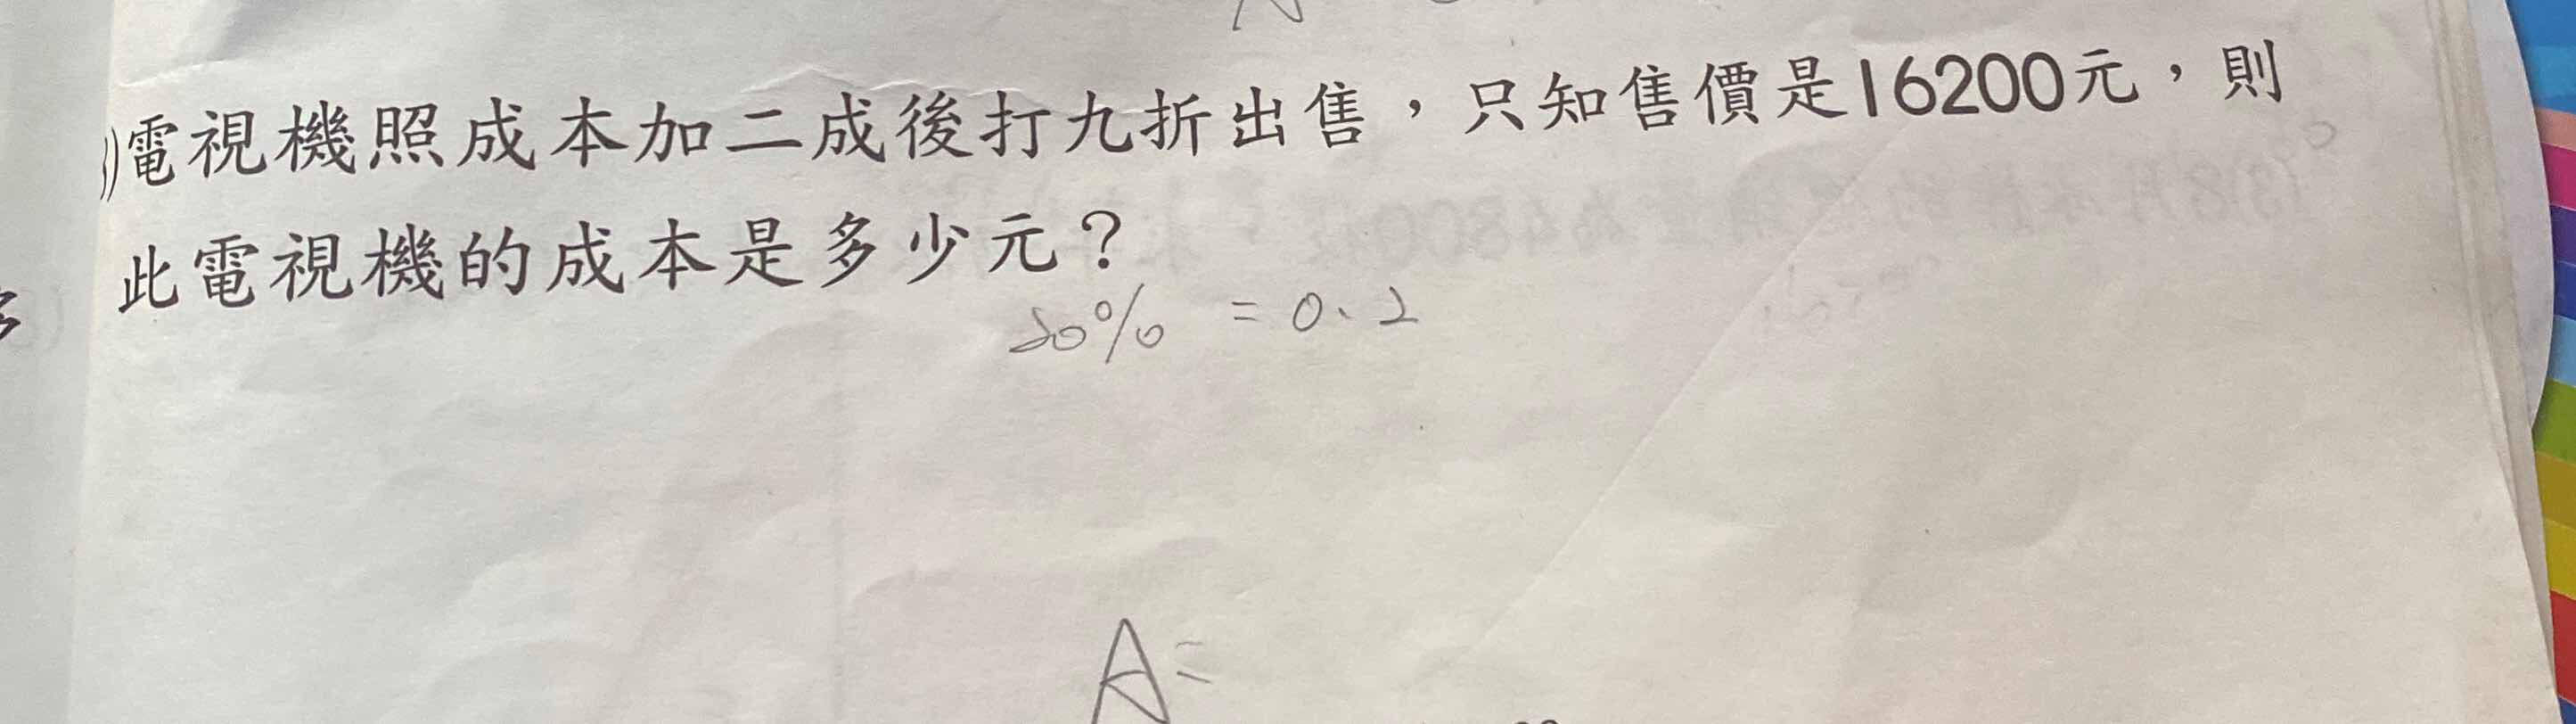 電視機照成本加二成後打九折出售，只知售價是16200元，則
此電視機的成本是多少元？
20% = 0.2
A=